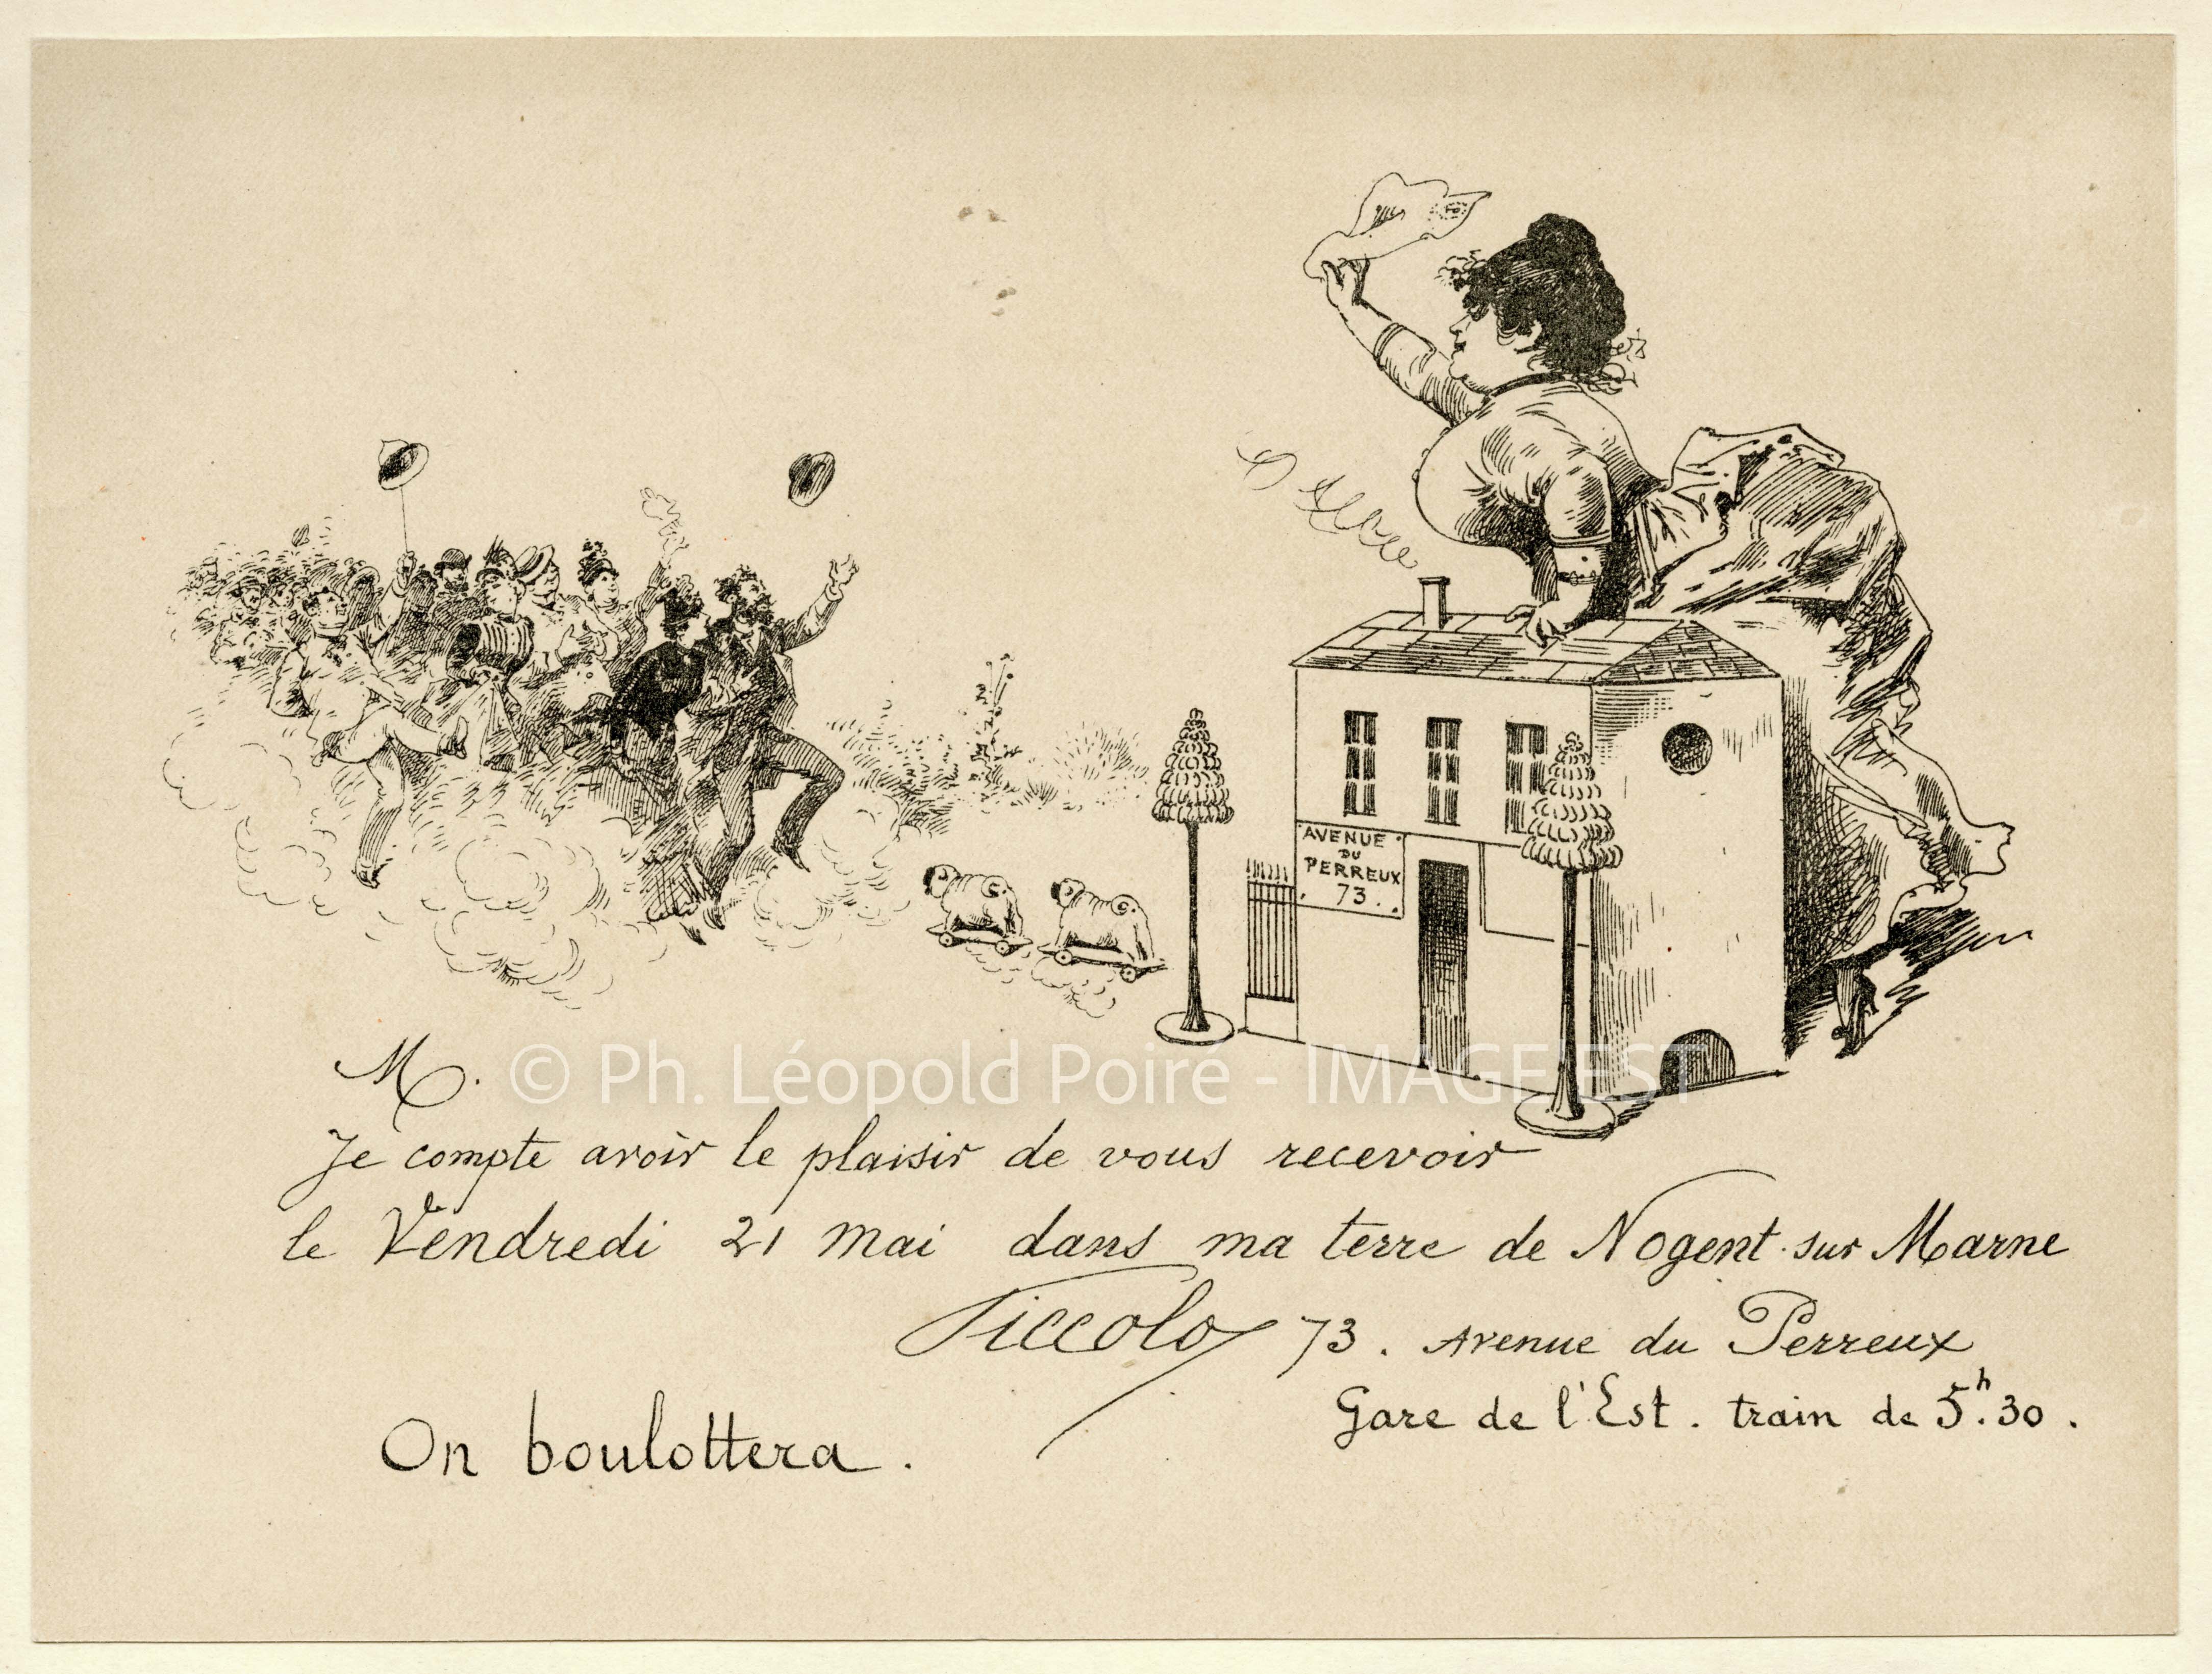 AVENUE
DU
PERREUX
73.
© Ph. Léopold Poiré - IMAGE'EST
M.
Je compte avoir le plaisir de vous recevoir
le Vendredi 21 Mai dans ma terre de Nogent-sur Marne
Piccolo 73. Avenue du Perreux
Gare de l'Est. train de 5h.30.
On boulottera.